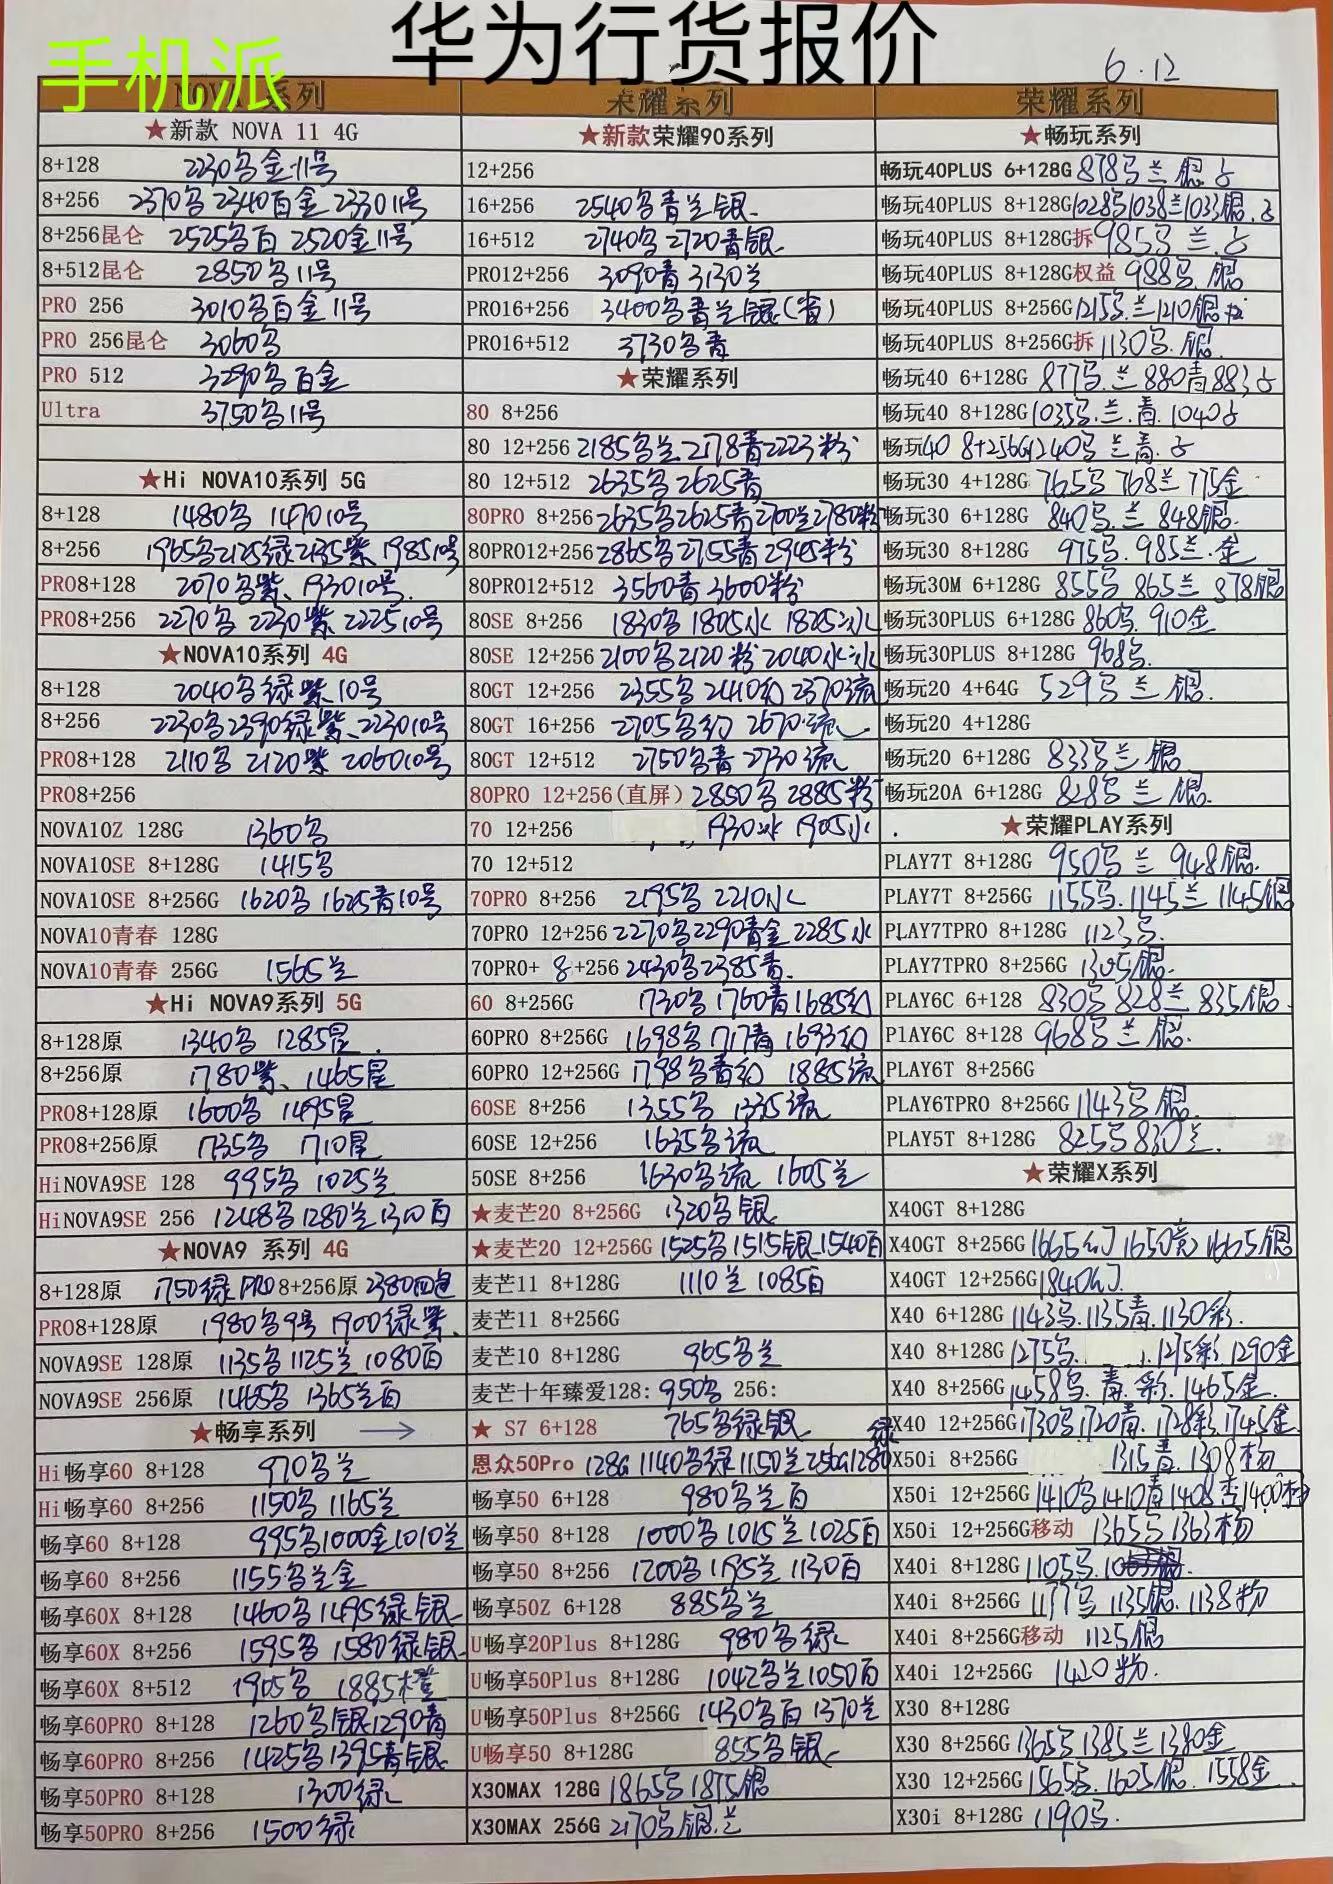 华为行货报价
手机派
6.12
NOVA 系列
★新款 NOVA 11 4G
8+128 2230 金 11号
8+256 2370 2340百金 2330 11号
8+256昆仑 2525 百 2520金11号
8+512昆仑 2850 11号
PRO 256 3010 百金 11号
PRO 256昆仑 3060
PRO 512 3290 百金
Ultra 3750 11号
★Hi NOVA10系列 5G
8+128 1480 1470 10号
8+256 1965 2125绿2135紫 1985 10号
PRO8+128 2070 紫、1930 10号
PRO8+256 2270 2230紫 2225 10号
★NOVA10系列 4G
8+128 2040 绿紫 10号
8+256 2230 2390绿紫、2230 10号
PRO8+128 2110 2120紫 2060 10号
PRO8+256
NOVA10Z 128G 1360
NOVA10SE 8+128G 1415
NOVA10SE 8+256G 1620 1625青10号
NOVA10青春 128G
NOVA10青春 256G 1565兰
★Hi NOVA9系列 5G
8+128原 1340 1285星
8+256原 1780紫、1465星
PRO8+128原 1600 1495星
PRO8+256原 1735 1710星
HiNOVA9SE 128 995 1025兰
HiNOVA9SE 256 1248 1280兰1300百
★NOVA9 系列 4G
8+128原 1750绿 PRO 8+256原 2380
PRO8+128原 1980 9号 1900绿紫
NOVA9SE 128原 1135 1125兰 1080百
NOVA9SE 256原 1465 1365兰百
★畅享系列 →
Hi畅享60 8+128 970 兰
Hi畅享60 8+256 1150 1165兰
畅享60 8+128 995 1000金1010兰
畅享60 8+256 1155 兰金
畅享60X 8+128 1460 1495绿银
畅享60X 8+256 1595 1580绿银
畅享60X 8+512 1905 1885橙
畅享60PRO 8+128 1260 银1290青
畅享60PRO 8+256 1425 1395青银
畅享50PRO 8+128 1300绿
畅享50PRO 8+256 1500绿
荣耀系列
★新款荣耀90系列
12+256
16+256 2540 青兰银
16+512 2740 2720青银
PRO12+256 3090青 3130兰
PRO16+256 3400 青兰银(省)
PRO16+512 3730 青
★荣耀系列
80 8+256
80 12+256 2185 兰2178青2223粉
80 12+512 2635 2625青
80PRO 8+256 2635 2625青2700兰2780粉
80PRO12+256 2865 2755青 2945粉
80PRO12+512 3560青 3600粉
80SE 8+256 1830 1805水 1825冰
80SE 12+256 2100 2120粉 2040水冰
80GT 12+256 2355 2410幻 2370流
80GT 16+256 2705 幻 2670流
80GT 12+512 2750 青 2730流
80PRO 12+256(直屏) 2850 2885粉
70 12+256 1930冰 1905水
70 12+512
70PRO 8+256 2195 2210水
70PRO 12+256 2270 2290青金 2285水
70PRO+ 8+256 2430 2385青
60 8+256G 1730 1760青1685幻
60PRO 8+256G 1698 1717青 1693幻
60PRO 12+256G 1798 青幻 1885流
60SE 8+256 1355 1335流
60SE 12+256 1635 流
50SE 8+256 1630 流 1605兰
★麦芒20 8+256G 1320 银
★麦芒20 12+256G 1525 1515银1540百
麦芒11 8+128G 1110兰 1085百
麦芒11 8+256G
麦芒10 8+128G 965 兰
麦芒十年臻爱128: 950 256:
★ S7 6+128 765 绿银
恩众50Pro 128G 1140 绿1150兰256G1280绿
畅享50 6+128 980 兰百
畅享50 8+128 1000 1015兰1025百
畅享50 8+256 1200 1195兰 1130百
畅享50Z 6+128 885 兰
U畅享20Plus 8+128G 980 绿
U畅享50Plus 8+128G 1042 兰1050百
U畅享50Plus 8+256G 1430 百 1370兰
U畅享50 8+128G 855 银
X30MAX 128G 1865 1875银
X30MAX 256G 2170 银.兰
荣耀系列
★畅玩系列
畅玩40PLUS 6+128G 878 兰 银
畅玩40PLUS 8+128G 1028 1038兰1033银
畅玩40PLUS 8+128G拆 985 兰
畅玩40PLUS 8+128G权益 988 银
畅玩40PLUS 8+256G 1215 兰1210银
畅玩40PLUS 8+256G拆 1130 银
畅玩40 6+128G 877 兰 880青 883
畅玩40 8+128G 1035 兰.青 1040
畅玩40 8+256G 1240 兰青
畅玩30 4+128G 765 768兰 775金
畅玩30 6+128G 840 兰 848银
畅玩30 8+128G 975 985兰.金
畅玩30M 6+128G 855 865兰 878银
畅玩30PLUS 6+128G 860 910金
畅玩30PLUS 8+128G 968
畅玩20 4+64G 529 兰 银
畅玩20 4+128G
畅玩20 6+128G 833 兰 银
畅玩20A 6+128G 828 兰 银
★荣耀PLAY系列
PLAY7T 8+128G 950 兰 948银
PLAY7T 8+256G 1155 1145兰 1145银
PLAY7TPRO 8+128G 1123
PLAY7TPRO 8+256G 1305银
PLAY6C 6+128 830 828兰 835银
PlAY6C 8+128 968 兰 银
PLAY6T 8+256G
PLAY6TPRO 8+256G 1143 银
PLAY5T 8+128G 825 830兰
★荣耀X系列
X40GT 8+128G
X40GT 8+256G 1665幻 1650竞 1665银
X40GT 12+256G 1840幻
X40 6+128G 1143 1135青.1130彩
X40 8+128G 1275 1275彩 1290金
X40 8+256G 1458 青.彩.1465金
X40 12+256G 1730 1720青.1728彩1745金
X50i 8+256G 1315青.1308杨
X50i 12+256G 1410 1410青1408杏1400
X50i 12+256G移动 1365 1363杨
X40i 8+128G 1105
X40i 8+256G 1177 1135银.1138粉
X40i 8+256G移动 1125银
X40i 12+256G 1420粉
X30 8+128G
X30 8+256G 1365 1385兰 1380金
X30 12+256G 1565 1605银.1558金
X30i 8+128G 1190